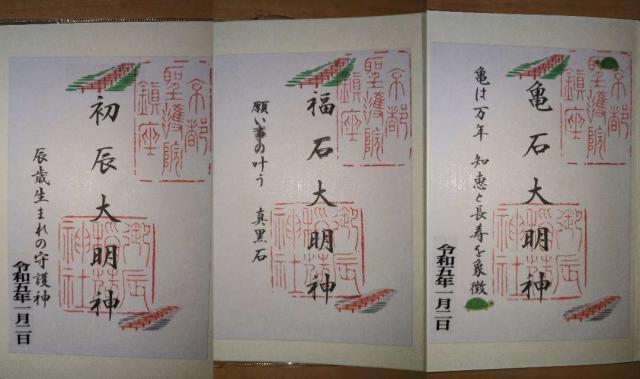 初辰大明神
辰歳生まれの守護神
令和五年一月二日
京都
聖護院
鎮座
御辰
稲荷
神社
福石大明神
願い事の叶う 真黒石
京都
聖護院
鎮座
御辰
稲荷
神社
亀石大明神
亀は万年 知恵と長寿を象徴
令和五年一月二日
京都
聖護院
鎮座
御辰
稲荷
神社